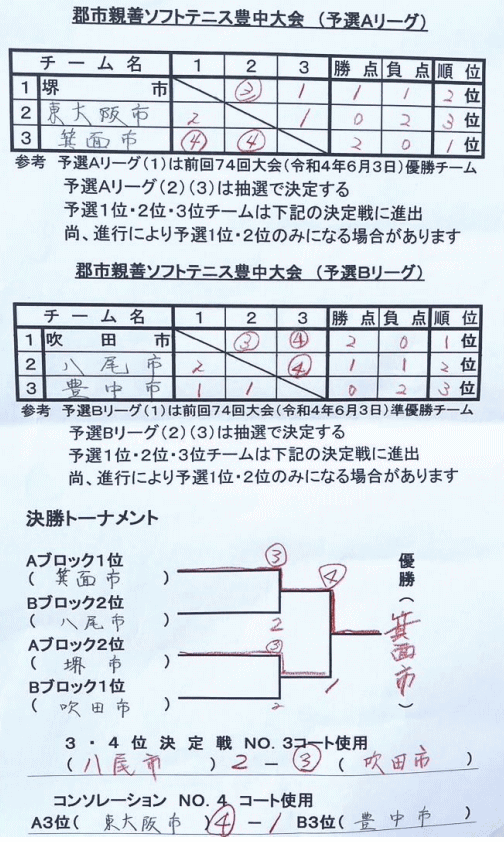 郡市親善ソフトテニス豊中大会 (予選Aリーグ)
チーム名 1 2 3 勝点 負点 順位
1 堺市 ③ 1 1 1 2位
2 東大阪市 2 1 0 2 3位
3 箕面市 ④ ④ 2 0 1位
参考 予選Aリーグ(1)は前回74回大会(令和4年6月3日)優勝チーム
予選Aリーグ(2)(3)は抽選で決定する
予選1位・2位・3位チームは下記の決定戦に進出
尚、進行により予選1位・2位のみになる場合があります
郡市親善ソフトテニス豊中大会 (予選Bリーグ)
チーム名 1 2 3 勝点 負点 順位
1 吹田市 ③ ④ 2 0 1位
2 八尾市 2 ④ 1 1 2位
3 豊中市 1 1 0 2 3位
参考 予選Bリーグ(1)は前回74回大会(令和4年6月3日)準優勝チーム
予選Bリーグ(2)(3)は抽選で決定する
予選1位・2位・3位チームは下記の決定戦に進出
尚、進行により予選1位・2位のみになる場合があります
決勝トーナメント
Aブロック1位
(箕面市) ③
Bブロック2位
(八尾市) 2
Aブロック2位
(堺市) ③
Bブロック1位
(吹田市) 2
④
1
優勝(箕面市)
3・4位決定戦 NO.3コート使用
(八尾市) 2 － ③ (吹田市)
コンソレーション NO.4 コート使用
A3位(東大阪市) ④ － 1 B3位(豊中市)